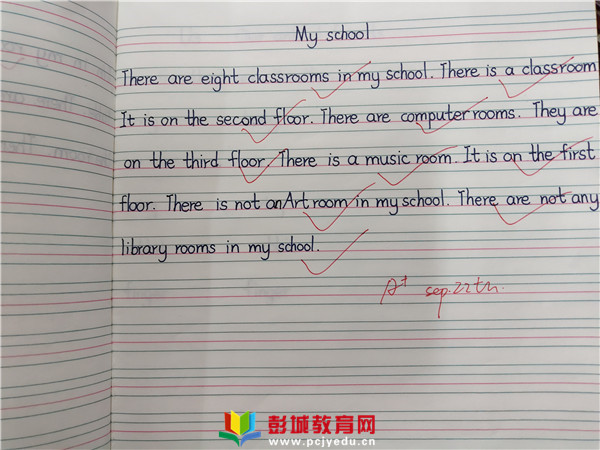 My school
There are eight classrooms in my school. There is a classroom
It is on the second floor. There are computer rooms. They are
on the third floor. There is a music room. It is on the first
floor. There is not an Art room in my school. There are not any
library rooms in my school.
A+ sep.22th.
彭城教育网
www.pcjyedu.cn